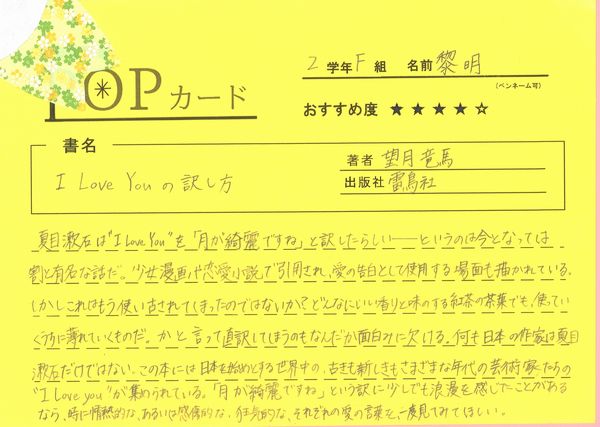 POPカード
2 学年 F 組 名前 黎明
(ペンネーム可)
おすすめ度 ★★★★☆
書名
I Love Youの訳し方
著者 望月竜馬
出版社 雷鳥社
夏目漱石は"I Love You"を「月が綺麗ですね」と訳したらしい──というのは今となっては
割と有名な話だ。少女漫画や恋愛小説で引用され、愛の告白として使用する場面も描かれている。
しかしこれはもう使い古されてしまったのではないか?どんなにいい香りと味のする紅茶の茶葉でも、使ってい
くうちに薄れていくものだ。かと言って直訳してしまうのもなんだか面白みに欠ける。何も日本の作家は夏目
漱石だけではない。この本には日本を始めとする世界中の、古きも新しきもさまざまな年代の芸術家たちの
"I Love you"が集められている。「月が綺麗ですね」という訳に少しでも浪漫を感じたことがある
なら、時に情熱的な、あるいは感傷的な、狂気的な、それぞれの愛の言葉を、一度見てみてほしい。